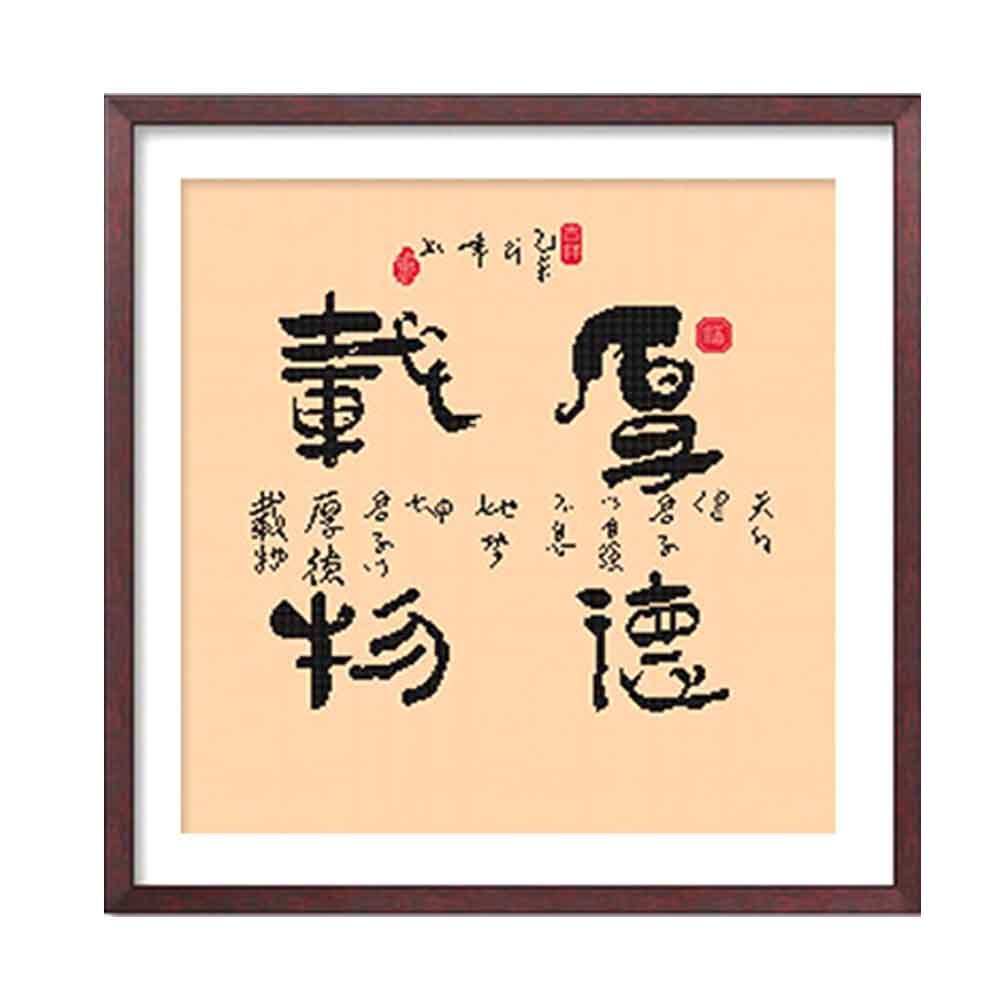 厚德
载物
天行
健
君子
以自强
不息
地势
坤
君子以
厚德
载物
吉祥
福